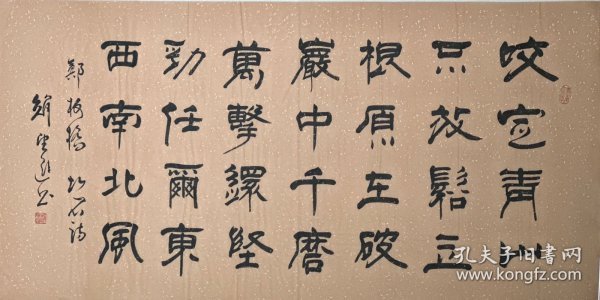 咬定青山
不放鬆立
根原在破
巖中千磨
萬擊還堅
勁任爾東
西南北風
鄭板橋竹石詩
趙望進书
孔夫子旧书网
www.kongfz.com